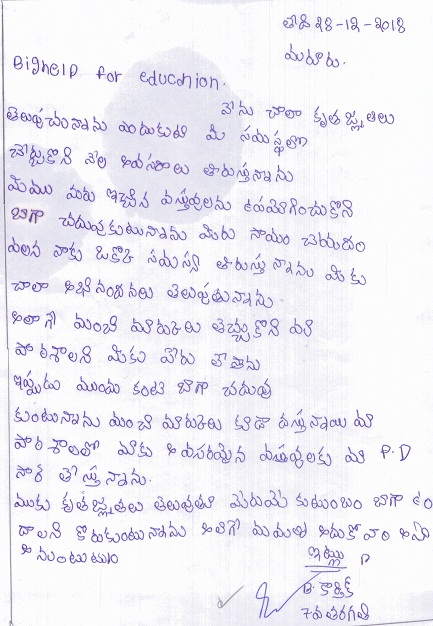 తేది 28-12-2018
మరూరు.
Bighelp for educanion.
నేను చాలా కృతజ్ఞతలు
తెలుపుచున్నాను ఎందుకంటే మీ సమస్థలో
చేర్చుకొని నేల అవసరాలు తీరుస్తున్నారు
మేము మీరు ఇచ్చిన వస్తువులను ఉపయోగించుకొని
బాగా చదువుకుటున్నాను మీరు సాయం చేయడం
వలన నాకు ఒకొక సమస్య తీరుస్తున్నారు మీకు
చాలా అభినందనలు తెలుపుతున్నాను.
అలాగే మంచి మారుకులు తెచ్చుకొని మా
పాఠశాలని మీకు పేరు తేస్తాను
ఇప్పుడు ముందు కంటె బాగా చదువు
కుంటున్నాను మంచి మారుకులు కూడా వస్తున్నాయి మా
పాఠశాలలో మాకు అవసరమైన వస్తువులకు మా P.D
సార్ తెస్తున్నారు.
మీకు కృతజ్ఞతలు తెలుపుతూ మీరుమీ కుటుంబం బాగా ఉం
డాలని కోరుకుంటున్నాను అలాగే మమల్ని ఆదుకోవాలి
ఇట్లు
కార్తీక్
7వ తరగతి